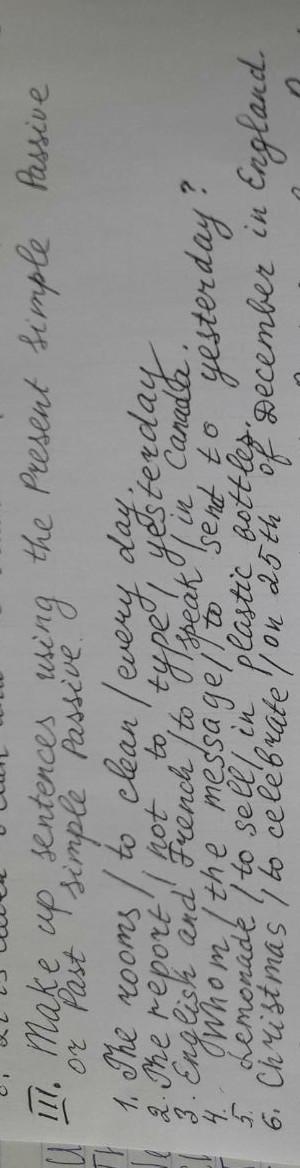 III. Make up sentences using the Present Simple Passive
or Past Simple Passive.
1. The rooms / to clean / every day.
2. The report / not to type / yesterday
3. English and French / to speak / in Canada.
4. Whom / the message / to send to yesterday?
5. Lemonade / to sell / in plastic bottles.
6. Christmas / to celebrate / on 25th of December in England.